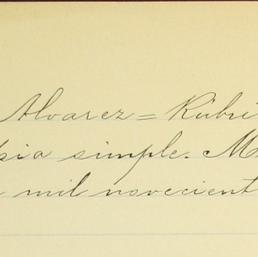 Alvarez = Rúbri
simple. M
mil novecient